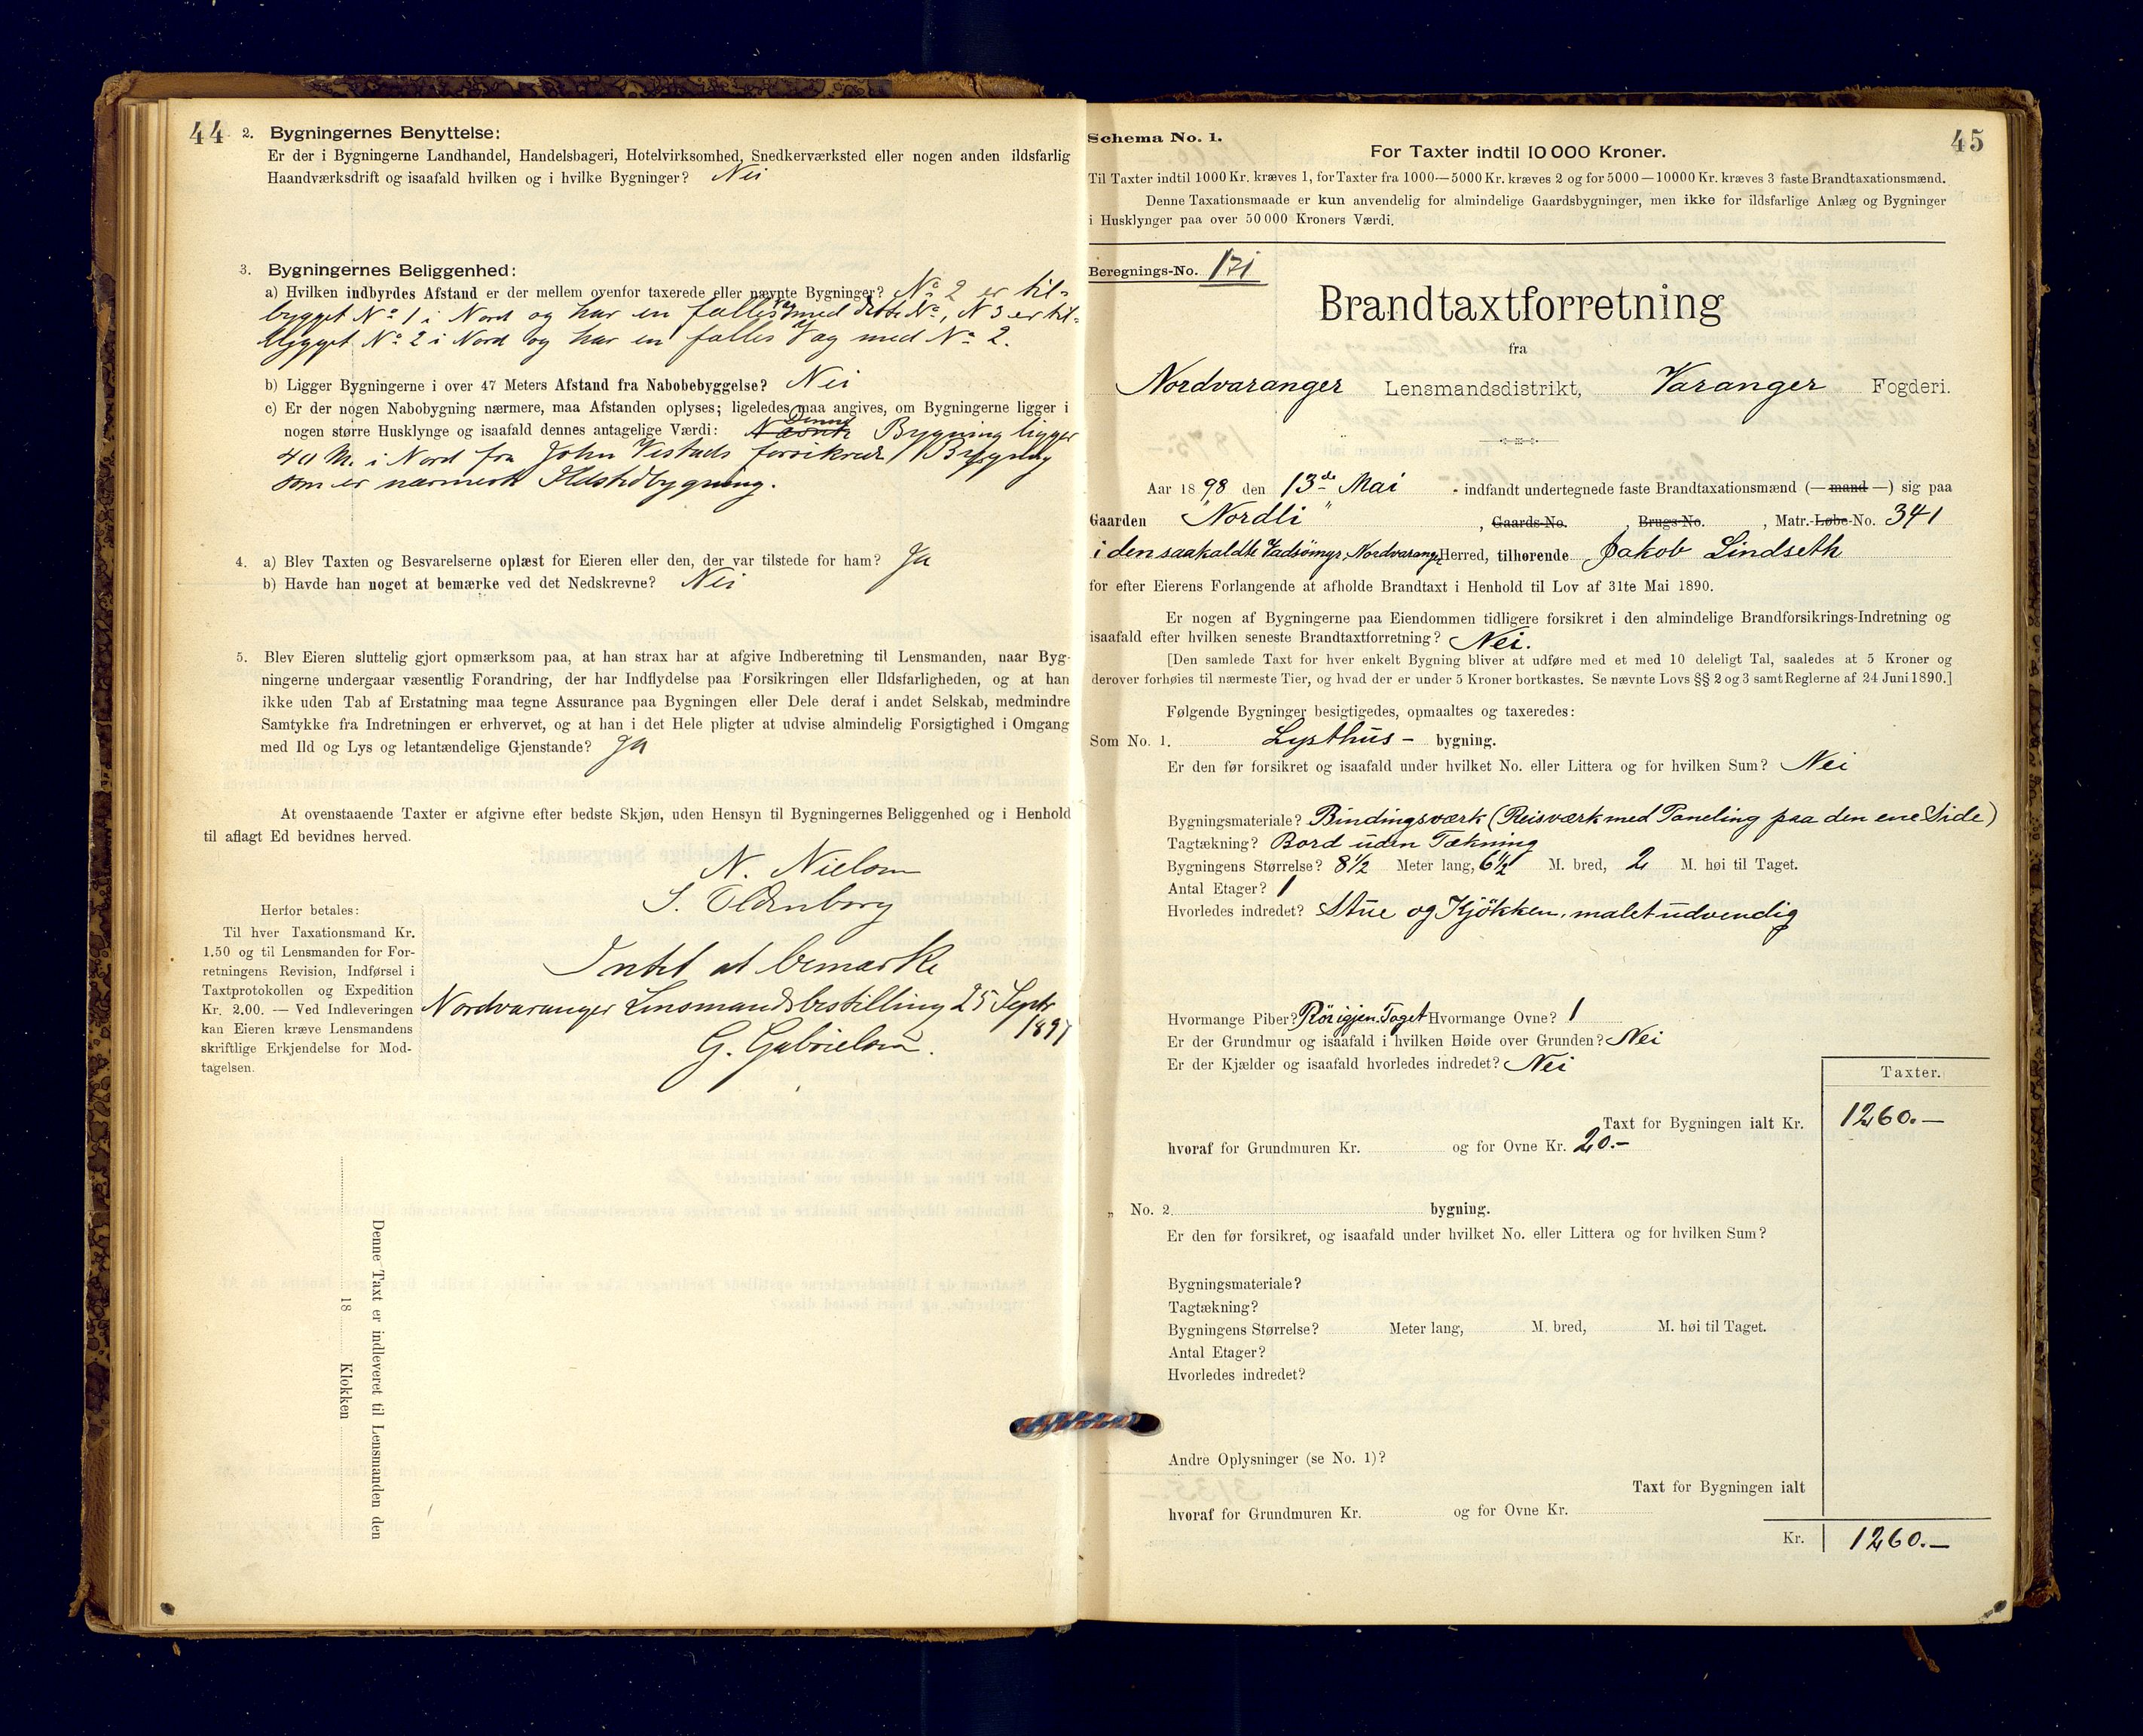 44
2. Bygningernes Benyttelse:
Er der i Bygningerne Landhandel, Handelsbageri, Hotelvirksomhed, Snedkerværksted eller nogen anden ildsfarlig
Haandværksdrift og isaafald hvilken og i hvilke Bygninger? Nei
3. Bygningernes Beliggenhed:
a) Hvilken indbyrdes Afstand er der mellem ovenfor taxerede eller nævnte Bygninger? No 2 er til-
bygget No 1 i Nord og har en fælles Væg med dette No, N 3 er til-
bygget No 2 i Nord og har en fælles Væg med No 2.
b) Ligger Bygningerne i over 47 Meters Afstand fra Nabobebyggelse? Nei
c) Er der nogen Nabobygning nærmere, maa Afstanden oplyses; ligeledes maa angives, om Bygningerne ligger i
nogen større Husklynge og isaafald dennes antagelige Værdi: Denne Bygning ligger
40 M. i Nord fra John Vestads forsikrede Bygning
som er nærmeste Ildstedbygning.
4. a) Blev Taxten og Besvarelserne oplæst for Eieren eller den, der var tilstede for ham? Ja
b) Havde han noget at bemærke ved det Nedskrevne? Nei
5. Blev Eieren sluttelig gjort opmærksom paa, at han strax har at afgive Indberetning til Lensmanden, naar Byg-
ningerne undergaar væsentlig Forandring, der har Indflydelse paa Forsikringen eller Ildsfarligheden, og at han
ikke uden Tab af Erstatning maa tegne Assurance paa Bygningen eller Dele deraf i andet Selskab, medmindre
Samtykke fra Indretningen er erhvervet, og at han i det Hele pligter at udvise almindelig Forsigtighed i Omgang
med Ild og Lys og letantændelige Gjenstande? Ja
At ovenstaaende Taxter er afgivne efter bedste Skjøn, uden Hensyn til Bygningernes Beliggenhed og i Henhold
til aflagt Ed bevidnes herved.
N. Nielsen
S. Oldenborg
Herfor betales:
Til hver Taxationsmand Kr.
1.50 og til Lensmanden for For-
retningens Revision, Indførsel i
Taxtprotokollen og Expedition
Kr. 2.00. — Ved Indleveringen
kan Eieren kræve Lensmandens
skriftlige Erkjendelse for Mod-
tagelsen.
Intet at bemærke
Nordvaranger Lensmandsbestilling 25 Septr
1897
G. Gabrielsen.
Denne Taxt er indleveret til Lensmanden den
18 Klokken
Schema No. 1.
45
For Taxter indtil 10 000 Kroner.
Til Taxter indtil 1000 Kr. kræves 1, for Taxter fra 1000—5000 Kr. kræves 2 og for 5000—10000 Kr. kræves 3 faste Brandtaxationsmænd.
Denne Taxationsmaade er kun anvendelig for almindelige Gaardsbygninger, men ikke for ildsfarlige Anlæg og Bygninger
i Husklynger paa over 50 000 Kroners Værdi.
Beregnings-No. 171
Brandtaxtforretning
fra
Nordvaranger Lensmandsdistrikt, Varanger Fogderi.
Aar 1898 den 13de Mai indfandt undertegnede faste Brandtaxationsmænd (— mand —) sig paa
Gaarden "Nordli", Gaards-No. , Brugs-No. , Matr.-Løbe-No. 341
i den saakaldte Vadsömyr, Nordvarang. Herred, tilhørende Jakob Lindseth
for efter Eierens Forlangende at afholde Brandtaxt i Henhold til Lov af 31te Mai 1890.
Er nogen af Bygningerne paa Eiendommen tidligere forsikret i den almindelige Brandforsikrings-Indretning og
isaafald efter hvilken seneste Brandtaxtforretning? Nei.
[Den samlede Taxt for hver enkelt Bygning bliver at udføre med et med 10 deleligt Tal, saaledes at 5 Kroner og
derover forhøies til nærmeste Tier, og hvad der er under 5 Kroner bortkastes. Se nævnte Lovs §§ 2 og 3 samt Reglerne af 24 Juni 1890.]
Følgende Bygninger besigtigedes, opmaaltes og taxeredes:
Som No. 1. Lysthus- bygning.
Er den før forsikret og isaafald under hvilket No. eller Littera og for hvilken Sum? Nei
Bygningsmateriale? Bindingsværk (Reisværk med Paneling paa den ene Side)
Tagtækning? Bord uden Tækning
Bygningens Størrelse? 8½ Meter lang, 6½ M. bred, 2 M. høi til Taget.
Antal Etager? 1
Hvorledes indredet? Stue og Kjökken, malet udvendig
Hvormange Piber? Rör igjen. Taget Hvormange Ovne? 1
Er der Grundmur og isaafald i hvilken Høide over Grunden? Nei
Er der Kjælder og isaafald hvorledes indredet? Nei
Taxter.
Taxt for Bygningen ialt Kr. 1260.—
hvoraf for Grundmuren Kr. og for Ovne Kr. 20.—
„ No. 2 bygning.
Er den før forsikret, og isaafald under hvilket No. eller Littera og for hvilken Sum?
Bygningsmateriale?
Tagtækning?
Bygningens Størrelse? Meter lang, M. bred, M. høi til Taget.
Antal Etager?
Hvorledes indredet?
Andre Oplysninger (se No. 1)?
Taxt for Bygningen ialt
hvoraf for Grundmuren Kr. og for Ovne Kr.
Kr. 1260.—